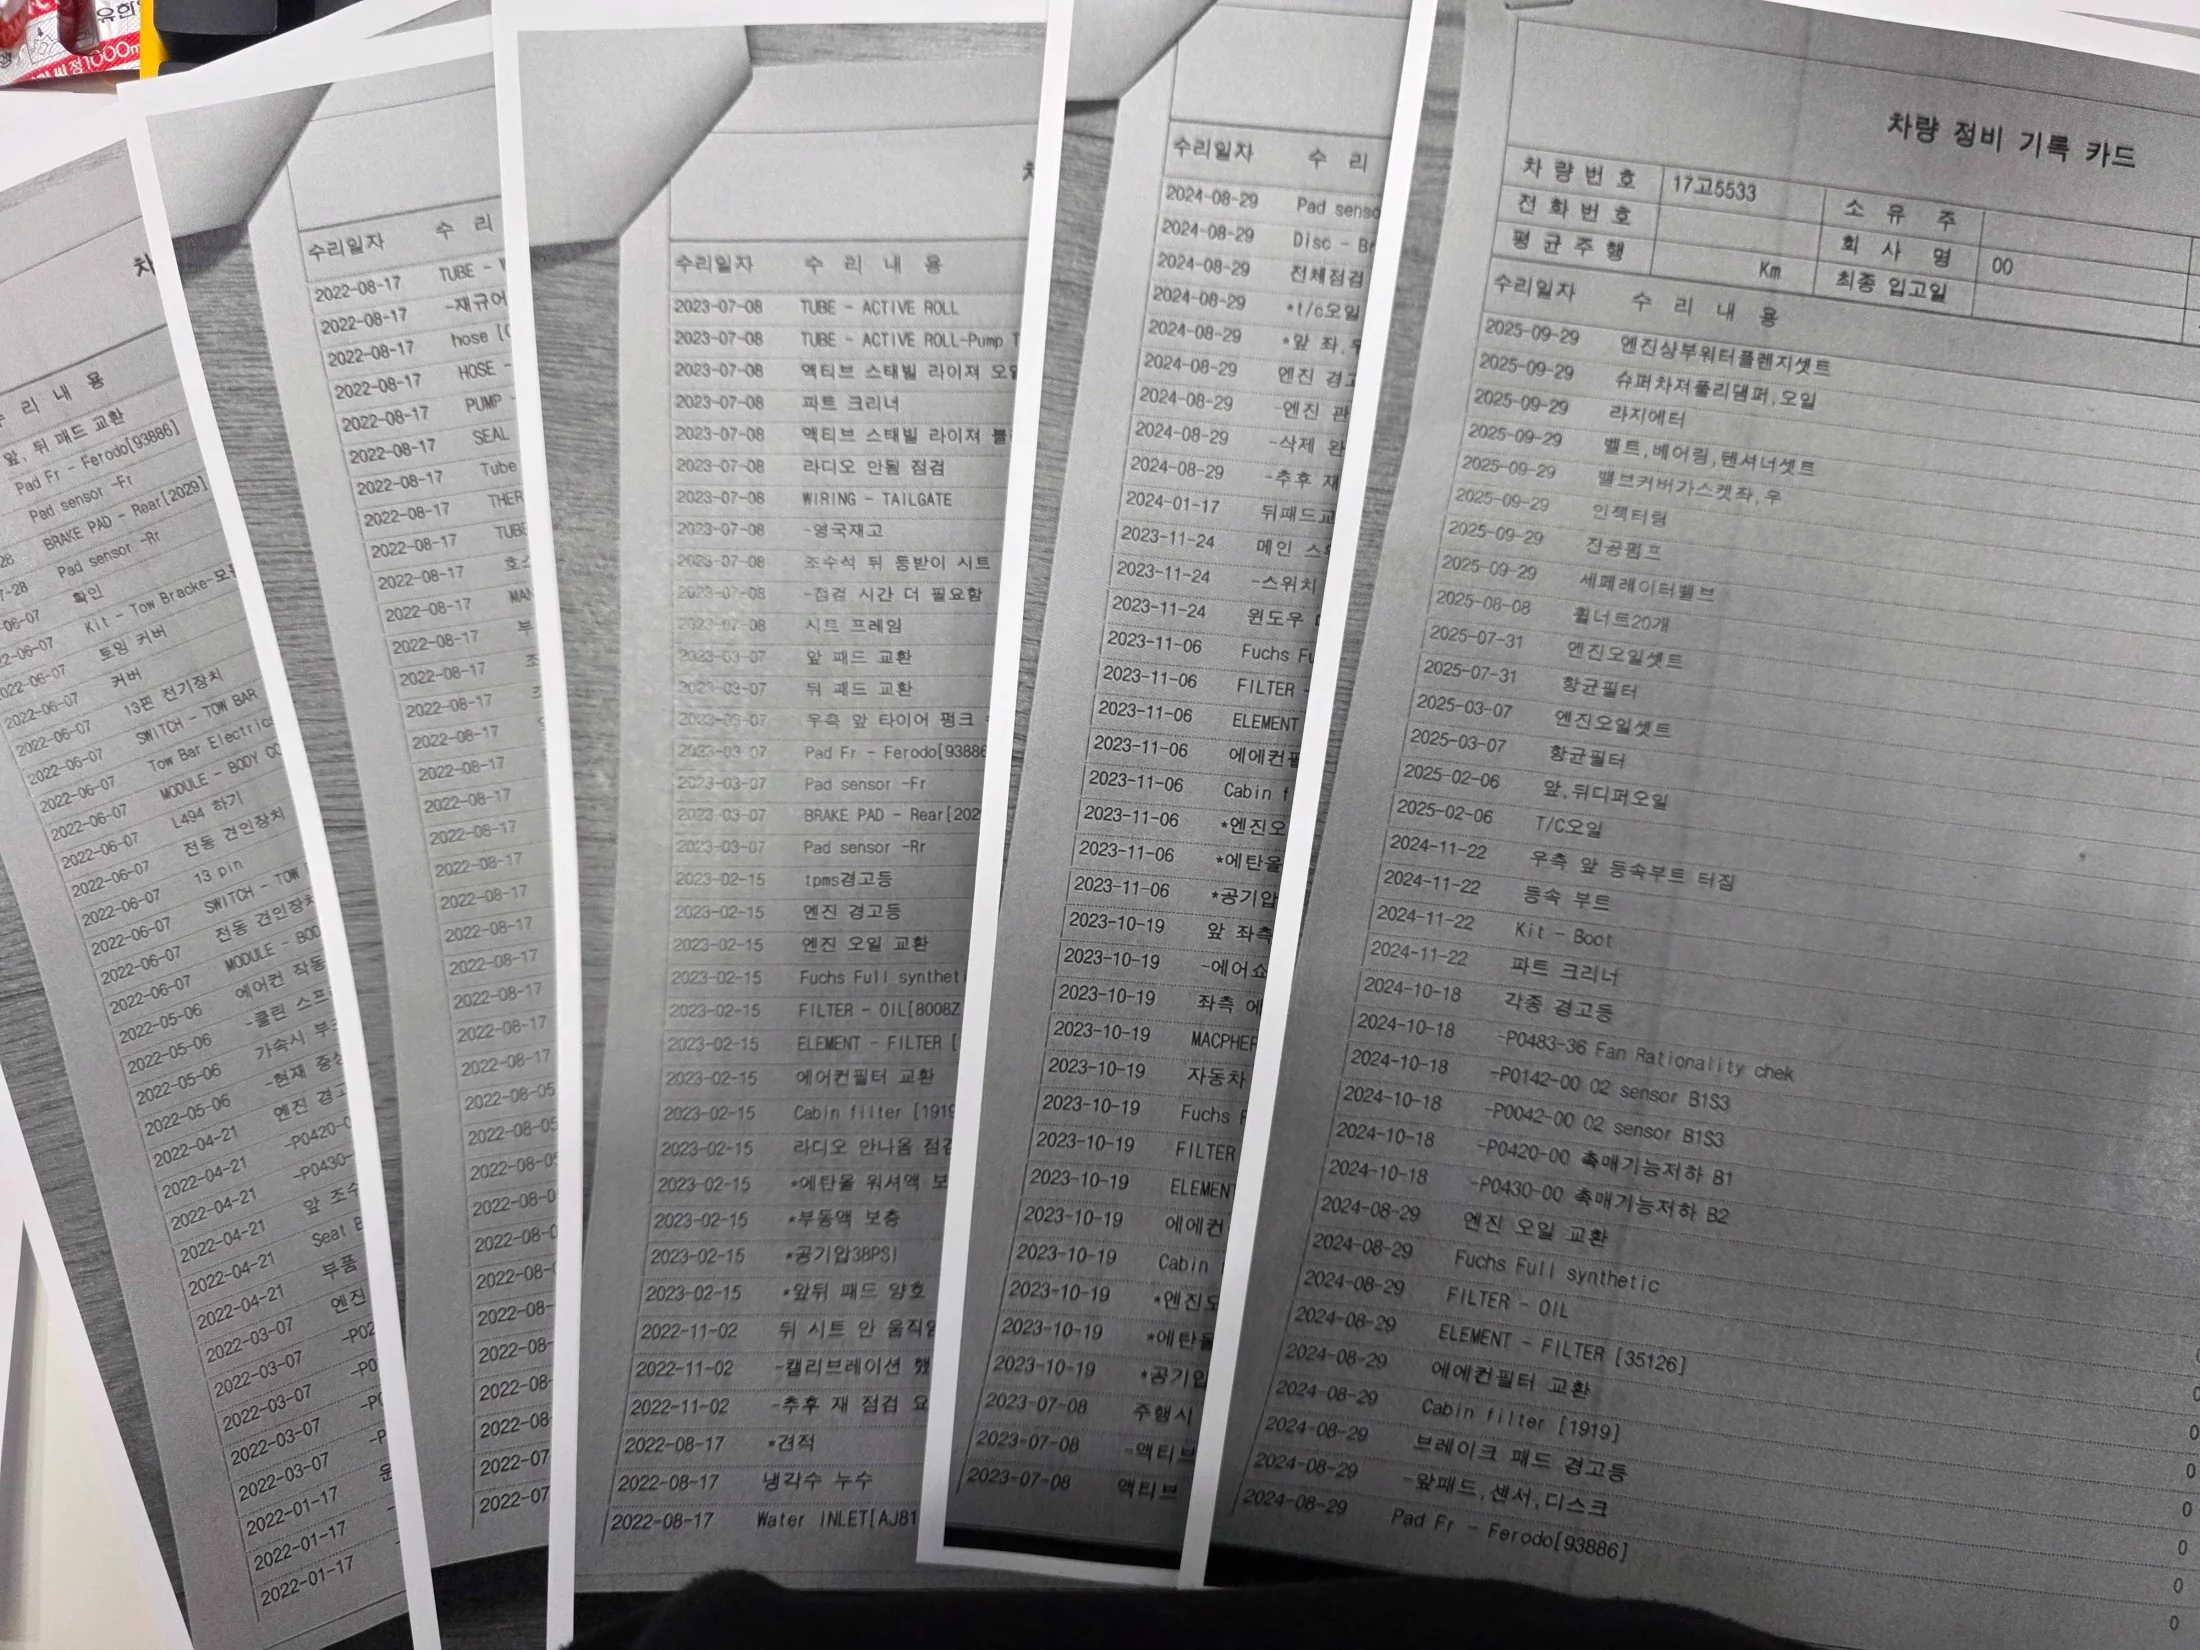 유한
정1000m
수 리 내 용
앞, 뒤 패드 교환
Pad Fr - Ferodo[93886]
Pad sensor -Fr
BRAKE PAD - Rear[2029]
Pad sensor -Rr
확인
Kit - Tow Bracke-모
2022-06-07 토잉 커버
2022-06-07 커버
2022-06-07 13핀 전기장치
2022-06-07 SWITCH - TOW BAR
2022-06-07 Tow Bar Electric
2022-06-07 MODULE - BODY CO
2022-06-07 L494 하기
2022-06-07 전동 견인장치
2022-06-07 13 pin
2022-06-07 SWITCH - TOW
2022-06-07 전동 견인장치
2022-06-07 MODULE - BOD
2022-05-06 에어컨 작동
2022-05-06 -클린 스프
2022-05-06 가속시 부
2022-05-06 -현재 증상
2022-04-21 엔진 경고
2022-04-21 -P0420-0
2022-04-21 -P0430-
2022-04-21 앞 조수
2022-04-21 Seat B
2022-04-21 부품
2022-03-07 엔진
2022-03-07 -P02
2022-03-07 -P0
2022-03-07
2022-03-07
2022-01-17
2022-01-17
2022-01-17
수리일자 수 리
2022-08-17 TUBE -
2022-08-17 -재규어
2022-08-17 hose [
2022-08-17 HOSE -
2022-08-17 PUMP -
2022-08-17 SEAL
2022-08-17 Tube
2022-08-17 THER
2022-08-17 TUBE
2022-08-17 호스
2022-08-17 MAN
2022-08-17 부
2022-08-17
2022-08-17
2022-08-17
2022-08-17
2022-08-17
2022-08-17
2022-08-17
2022-08-17
2022-08-17
2022-08-17
2022-08-17
2022-08-17
2022-08-17
2022-08-05
2022-08-05
수리일자 수 리 내 용
2023-07-08 TUBE - ACTIVE ROLL
2023-07-08 TUBE - ACTIVE ROLL-Pump T
2023-07-08 액티브 스태빌 라이져 오일
2023-07-08 파트 크리너
2023-07-08 액티브 스태빌 라이져 블
2023-07-08 라디오 안됨 점검
2023-07-08 WIRING - TAILGATE
2023-07-08 -영국재고
2023-07-08 조수석 뒤 등받이 시트
2023-07-08 -점검 시간 더 필요함
2023-07-08 시트 프레임
2023-03-07 앞 패드 교환
2023-03-07 뒤 패드 교환
2023-03-07 우측 앞 타이어 펑크
2023-03-07 Pad Fr - Ferodo[93886
2023-03-07 Pad sensor -Fr
2023-03-07 BRAKE PAD - Rear[202
2023-03-07 Pad sensor -Rr
2023-02-15 tpms경고등
2023-02-15 엔진 경고등
2023-02-15 엔진 오일 교환
2023-02-15 Fuchs Full syntheti
2023-02-15 FILTER - OIL[8008Z
2023-02-15 ELEMENT - FILTER [
2023-02-15 에어컨필터 교환
2023-02-15 Cabin filter [1919
2023-02-15 라디오 안나옴 점검
2023-02-15 *에탄올 워셔액 보
2023-02-15 *부동액 보충
2023-02-15 *공기압38PSI
2023-02-15 *앞뒤 패드 양호
2022-11-02 뒤 시트 안 움직임
2022-11-02 -캘리브레이션 했
2022-11-02 -추후 재 점검 요
2022-08-17 *견적
2022-08-17 냉각수 누수
2022-08-17 Water INLET[AJ81
수리일자 수 리
2024-08-29 Pad senso
2024-08-29 Disc - Br
2024-08-29 전체점검
2024-08-29 *t/c오일
2024-08-29 *앞 좌,우
2024-08-29 엔진 경고
2024-08-29 -엔진 관
2024-08-29 -삭제 완
2024-08-29 -추후 재
2024-01-17 뒤패드교
2023-11-24 메인 스위
2023-11-24 -스위치
2023-11-24 윈도우
2023-11-06 Fuchs Fu
2023-11-06 FILTER -
2023-11-06 ELEMENT
2023-11-06 에에컨필
2023-11-06 Cabin f
2023-11-06 *엔진오
2023-11-06 *에탄올
2023-11-06 *공기압
2023-10-19 앞 좌측
2023-10-19 -에어쇼
2023-10-19 좌측 에
2023-10-19 MACPHER
2023-10-19 자동차
2023-10-19 Fuchs F
2023-10-19 FILTER
2023-10-19 ELEMENT
2023-10-19 에에컨
2023-10-19 Cabin
2023-10-19 *엔진오
2023-10-19 *에탄올
2023-10-19 *공기압
2023-07-08 주행시
2023-07-08 -액티브
2023-07-08 액티브
차량 정비 기록 카드
차 량 번 호 17고5533 소 유 주
전 화 번 호 회 사 명 00
평 균 주 행 Km 최종 입고일
수리일자 수 리 내 용
2025-09-29 엔진상부워터플렌지셋트
2025-09-29 슈퍼차저풀리댐퍼,오일
2025-09-29 라지에터
2025-09-29 벨트,베어링,텐셔너셋트
2025-09-29 밸브커버가스켓좌,우
2025-09-29 인젝터링
2025-09-29 진공펌프
2025-09-29 세페레이터밸브
2025-08-08 휠너트20개
2025-07-31 엔진오일셋트
2025-07-31 항균필터
2025-03-07 엔진오일셋트
2025-03-07 항균필터
2025-02-06 앞,뒤디퍼오일
2025-02-06 T/C오일
2024-11-22 우측 앞 등속부트 터짐
2024-11-22 등속 부트
2024-11-22 Kit - Boot
2024-11-22 파트 크리너
2024-10-18 각종 경고등
2024-10-18 -P0483-36 Fan Rationality chek
2024-10-18 -P0142-00 02 sensor B1S3
2024-10-18 -P0042-00 02 sensor B1S3
2024-10-18 -P0420-00 촉매기능저하 B1
2024-10-18 -P0430-00 촉매기능저하 B2
2024-08-29 엔진 오일 교환
2024-08-29 Fuchs Full synthetic
2024-08-29 FILTER - OIL
2024-08-29 ELEMENT - FILTER [35126]
2024-08-29 에에컨필터 교환
2024-08-29 Cabin filter [1919]
2024-08-29 브레이크 패드 경고등
2024-08-29 -앞패드,센서,디스크
2024-08-29 Pad Fr - Ferodo[93886]